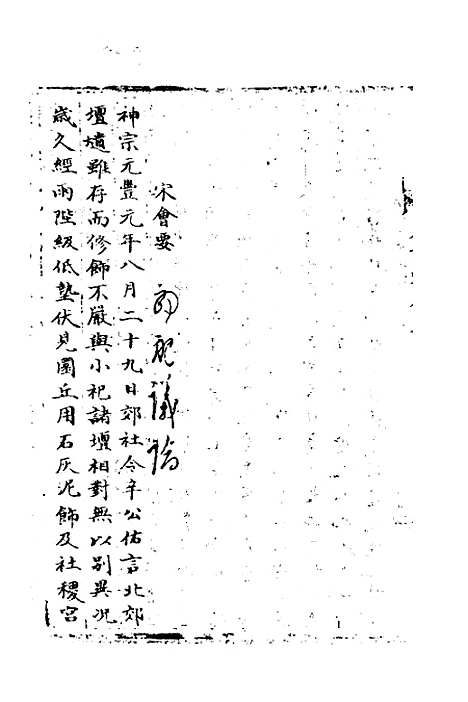 宋會要 郊祀議論
神宗元豐元年八月二十九日郊社令辛公佑言北郊
壇壝雖存而修飾不嚴與小祀諸壇相對無以別異況
歲久經雨陛級低墊伏見圜丘用石灰泥飾及社稷宮